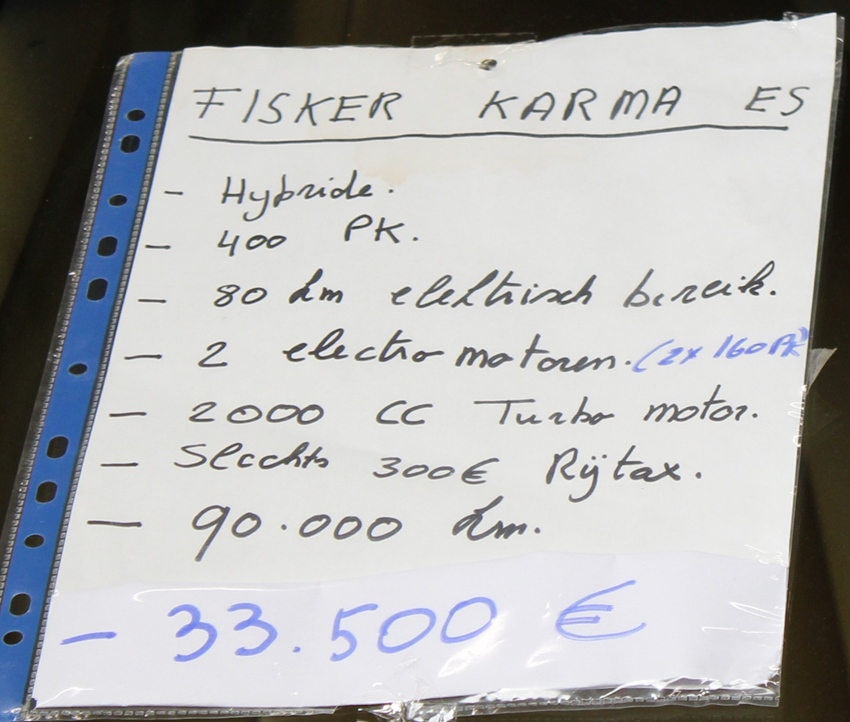 FISKER KARMA ES
- Hybride.
- 400 PK.
- 80 km elektrisch bereik.
- 2 electro motoren. (2x 160 PK)
- 2000 CC Turbo motor.
- Slechts 300€ Rijtax.
- 90.000 km.
- 33.500 €